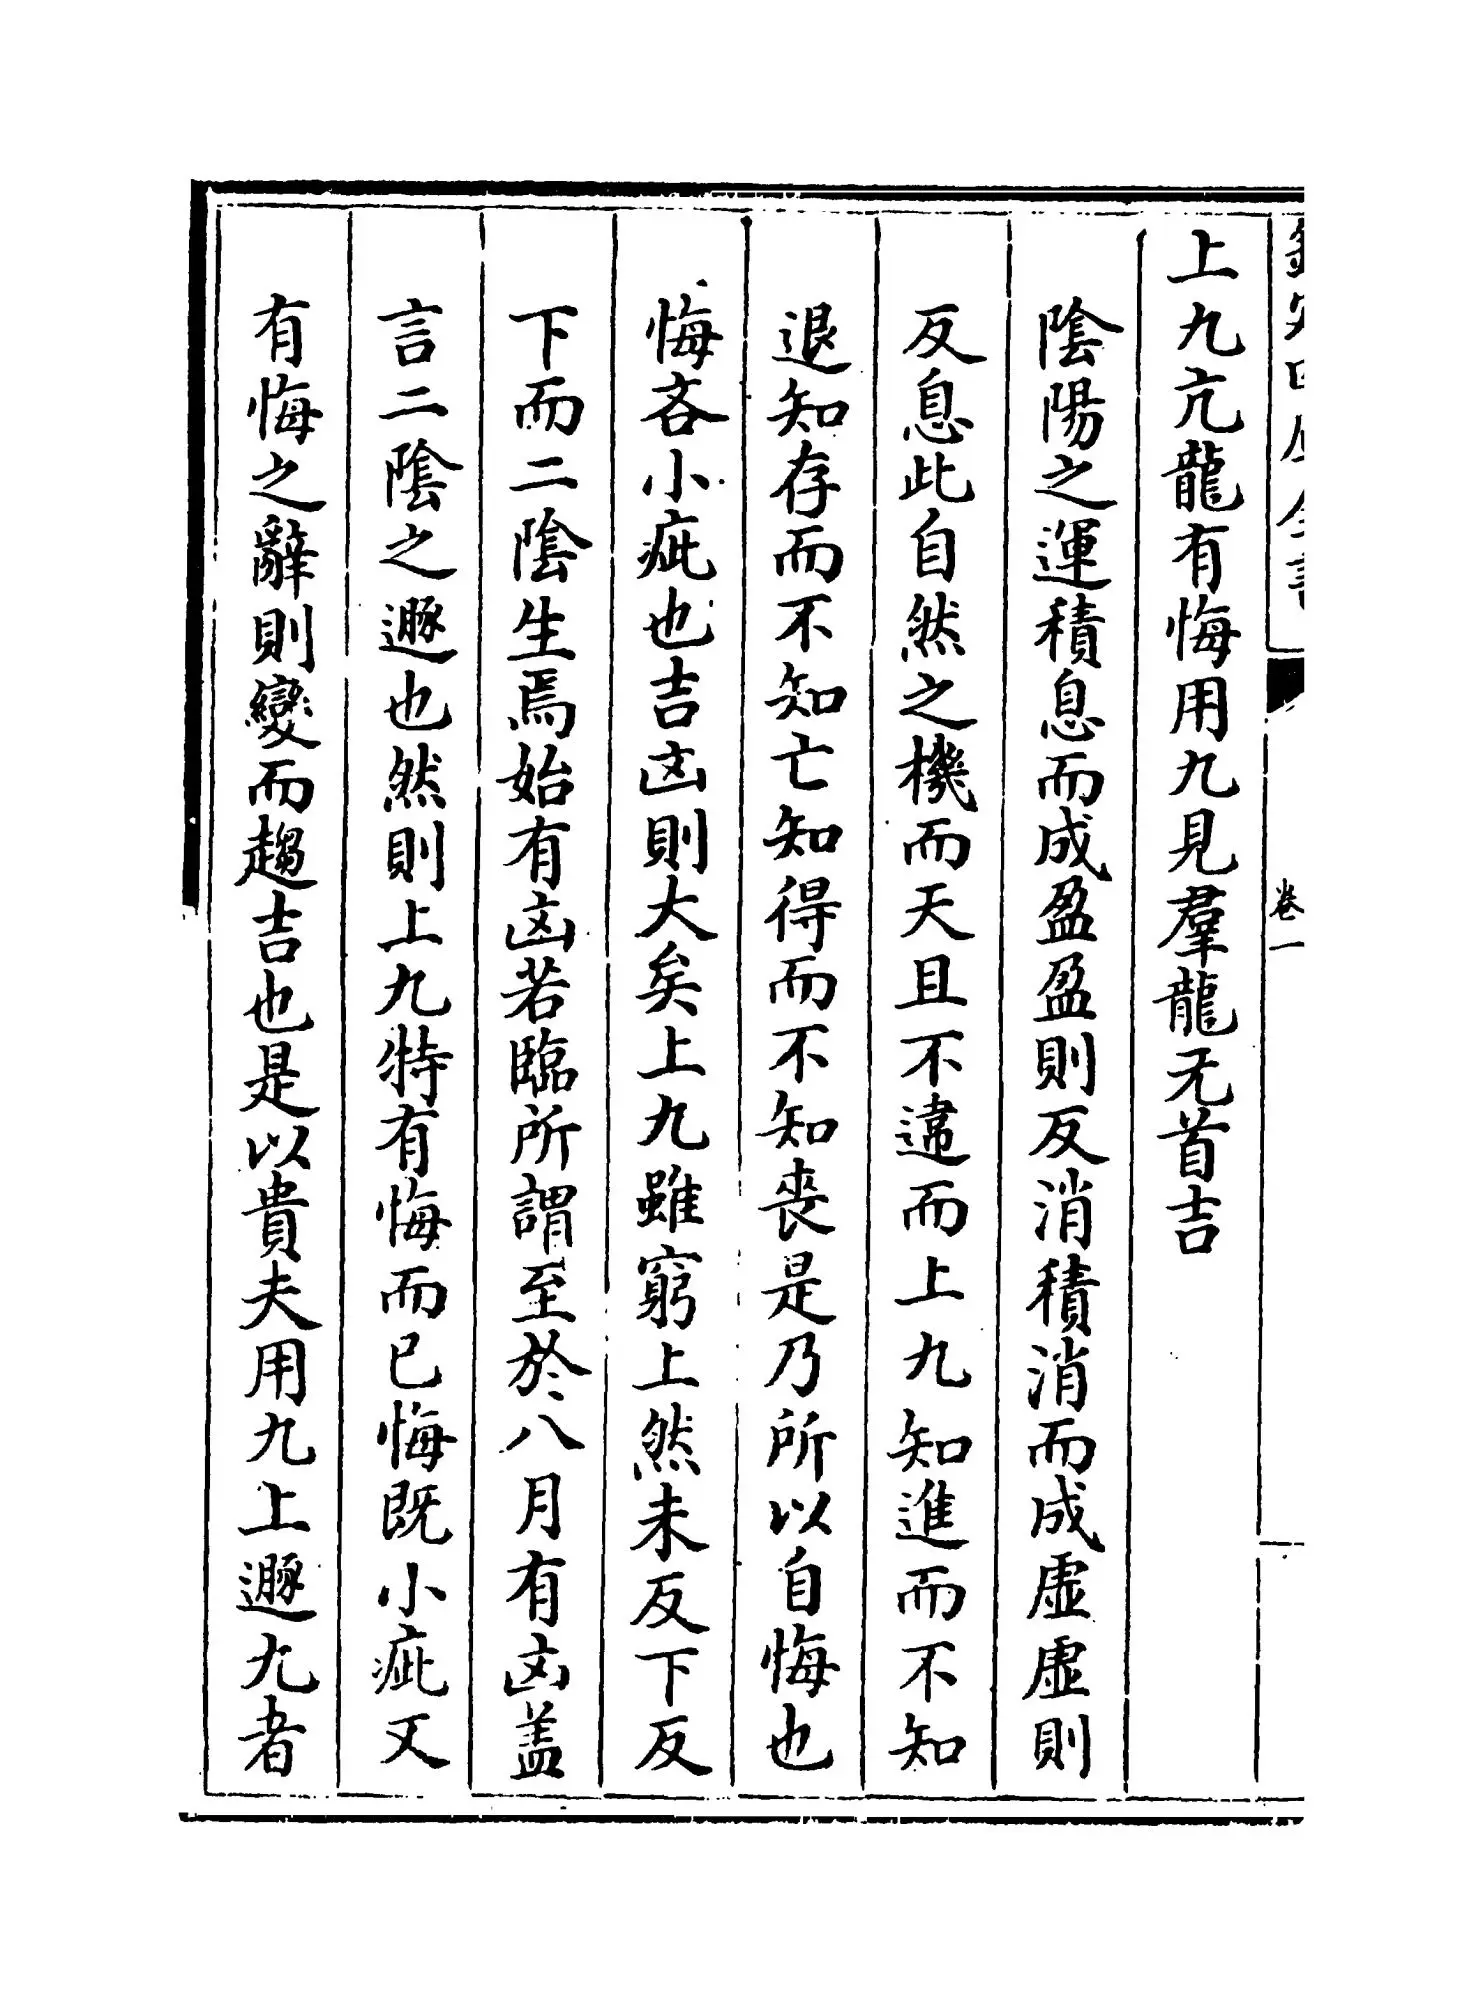 欽定四庫全書
卷一
上九亢龍有悔用九見羣龍无首吉
陰陽之運積息而成盈盈則反消積消而成虛虛則
反息此自然之機而天且不違而上九知進而不知
退知存而不知亡知得而不知喪是乃所以自悔也
悔吝小疵也吉凶則大矣上九雖窮上然未反下反
下而二陰生焉始有凶若臨所謂至於八月有凶盖
言二陰之遯也然則上九特有悔而已悔既小疵又
有悔之辭則變而趨吉也是以貴夫用九上遯九者